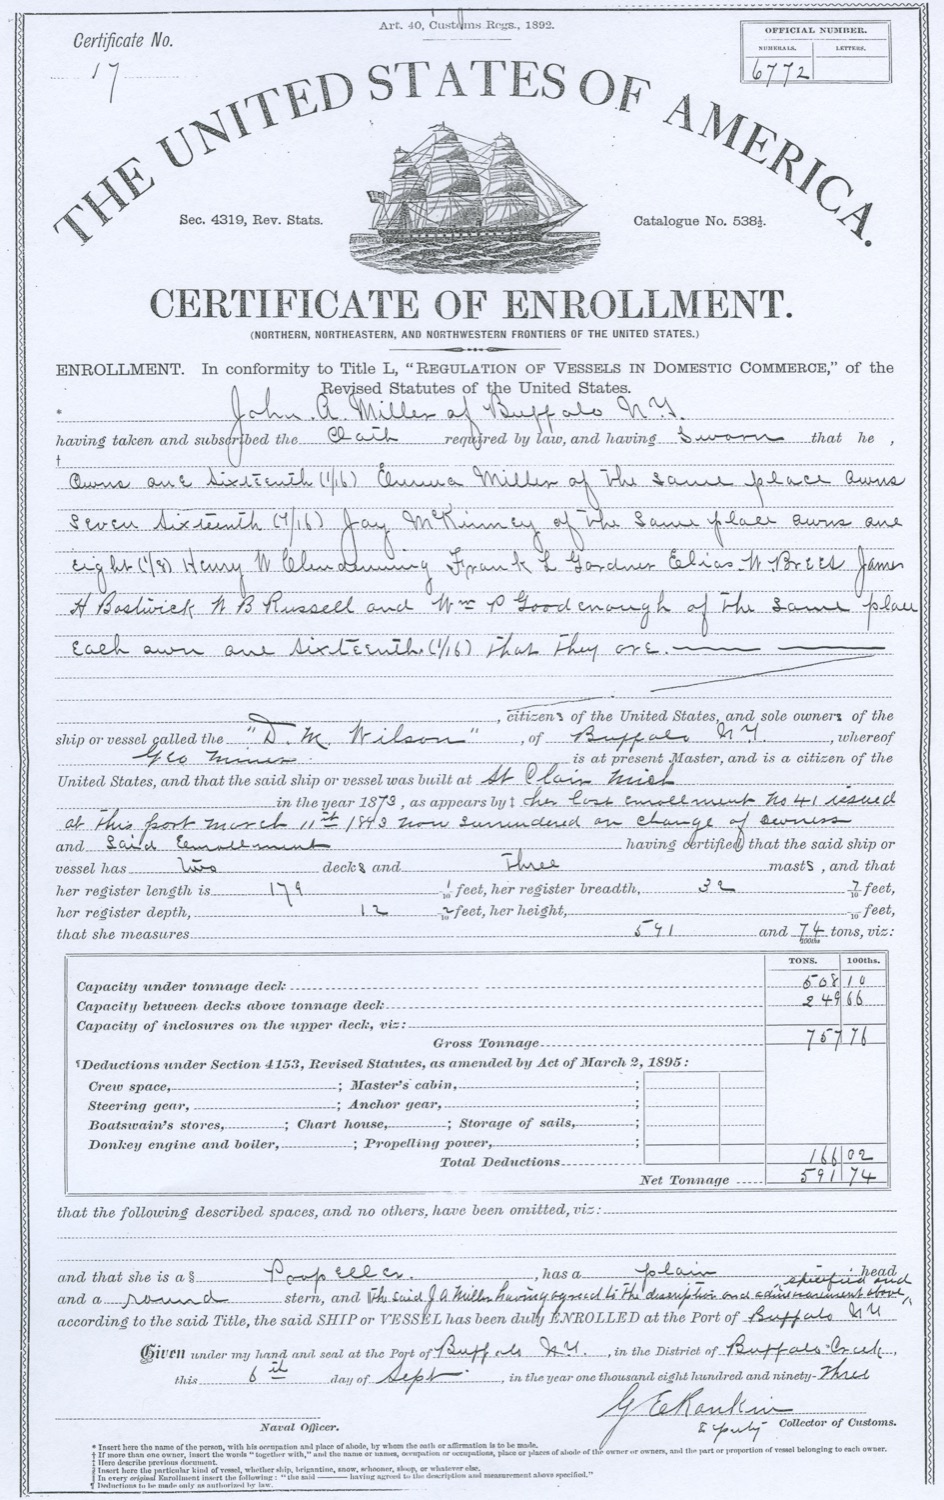 Art. 40, Customs Regs., 1892.
Certificate No.
17
OFFICIAL NUMBER.
NUMERALS. LETTERS.
6772
THE UNITED STATES OF AMERICA.
Sec. 4319, Rev. Stats.
Catalogue No. 538½.
CERTIFICATE OF ENROLLMENT.
(NORTHERN, NORTHEASTERN, AND NORTHWESTERN FRONTIERS OF THE UNITED STATES.)
ENROLLMENT. In conformity to Title L, "REGULATION OF VESSELS IN DOMESTIC COMMERCE," of the
Revised Statutes of the United States.
* John A. Miller of Buffalo N.Y.
having taken and subscribed the Oath required by law, and having Sworn that he ,
†
Owns one Sixteenth (1/16) Emma Miller of the same place owns
Seven Sixteenth (7/16) Jay McKinney of the same place owns one
eight (1/8) Henry W Clendenning Frank L Gardner Elias W Brees James
H Bostwick W B Russell and Wm P Goodenough of the same place
Each own one sixteenth (1/16) that they are
, citizens of the United States, and sole owners of the
ship or vessel called the "D. M Wilson" , of Buffalo N.Y. , whereof
Geo Miner is at present Master, and is a citizen of the
United States, and that the said ship or vessel was built at St Clair Mich
in the year 1873, as appears by‡ her last enrollment No 41 issued
at this port March 11th 1893 now surrendered on change of owners
and Said Enrollment having certified that the said ship or
vessel has two decks and three masts, and that
her register length is 179 1/10 feet, her register breadth, 32 7/10 feet,
her register depth, 12 2/10 feet, her height, /10 feet,
that she measures 591 and 74/100ths tons, viz:
TONS. 100ths.
Capacity under tonnage deck 508 10
Capacity between decks above tonnage deck 249 66
Capacity of inclosures on the upper deck, viz:
Gross Tonnage 757 76
¶Deductions under Section 4153, Revised Statutes, as amended by Act of March 2, 1895:
Crew space, ; Master's cabin, ;
Steering gear, ; Anchor gear, ;
Boatswain's stores, ; Chart house, ; Storage of sails, ;
Donkey engine and boiler, ; Propelling power, ;
Total Deductions 166 02
Net Tonnage 591 74
that the following described spaces, and no others, have been omitted, viz:
and that she is a § Propeller , has a plain head
and a round stern, and the said J A Miller having agreed to the description and admeasurement above specified and
according to the said Title, the said SHIP or VESSEL has been duly ENROLLED at the Port of Buffalo N Y
Given under my hand and seal at the Port of Buffalo N.Y. , in the District of Buffalo Creek ,
this 6th day of Sept , in the year one thousand eight hundred and ninety-Three
G E Rankin
Naval Officer. Deputy Collector of Customs.
* Insert here the name of the person, with his occupation and place of abode, by whom the oath or affirmation is to be made.
† If more than one owner, insert the words "together with," and the name or names, occupation or occupations, place or places of abode of the owner or owners, and the part or proportion of vessel belonging to each owner.
‡ Here describe previous document.
§ Insert here the particular kind of vessel, whether ship, brigantine, snow, schooner, sloop, or whatever else.
‖ In every original Enrollment insert the following: "the said —— having agreed to the description and measurement above specified."
¶ Deductions to be made only as authorized by law.